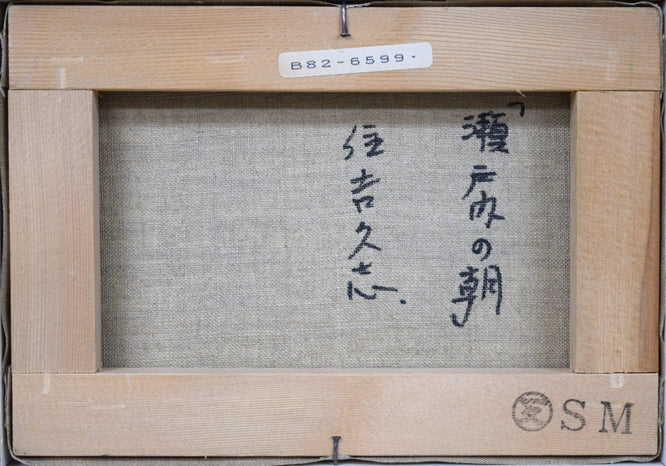 B82-6599.
「瀬戸内の朝」
住吉久志.
SM